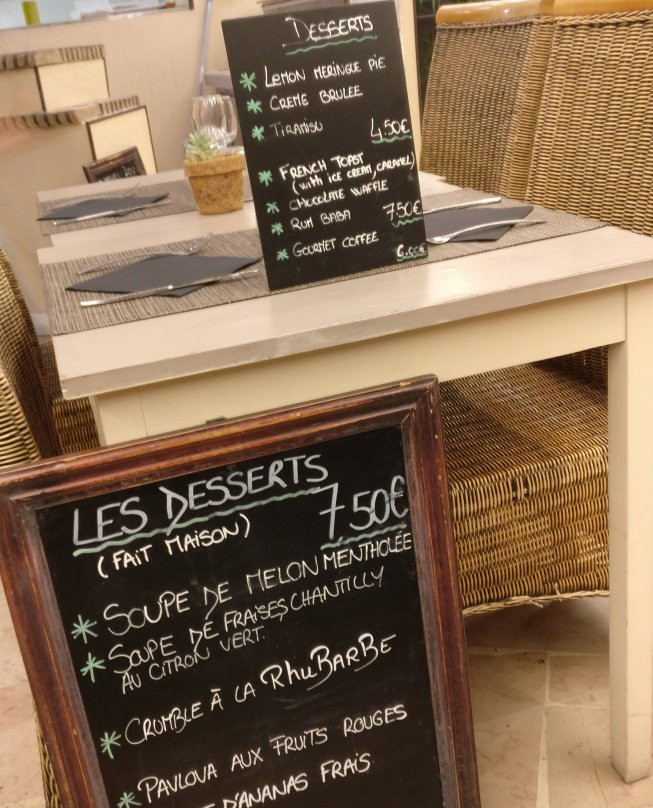 DESSERTS
LEMON MERINGUE PIE
CREME BRULEE
TIRAMISU 4.50€
FRENCH TOAST
(with ICE CREAM, CARAMEL)
CHOCOLATE WAFFLE
RUM BABA 7.50€
GOURMET COFFEE
6.00€
LES DESSERTS
(FAIT MAISON) 7,50€
SOUPE DE MELON MENTHOLÉE
SOUPE DE FRAISES CHANTILLY
AU CITRON VERT.
CRUMBLE À LA RhuBARBE
PAVLOVA AUX FRUITS ROUGES
D'ANANAS FRAIS